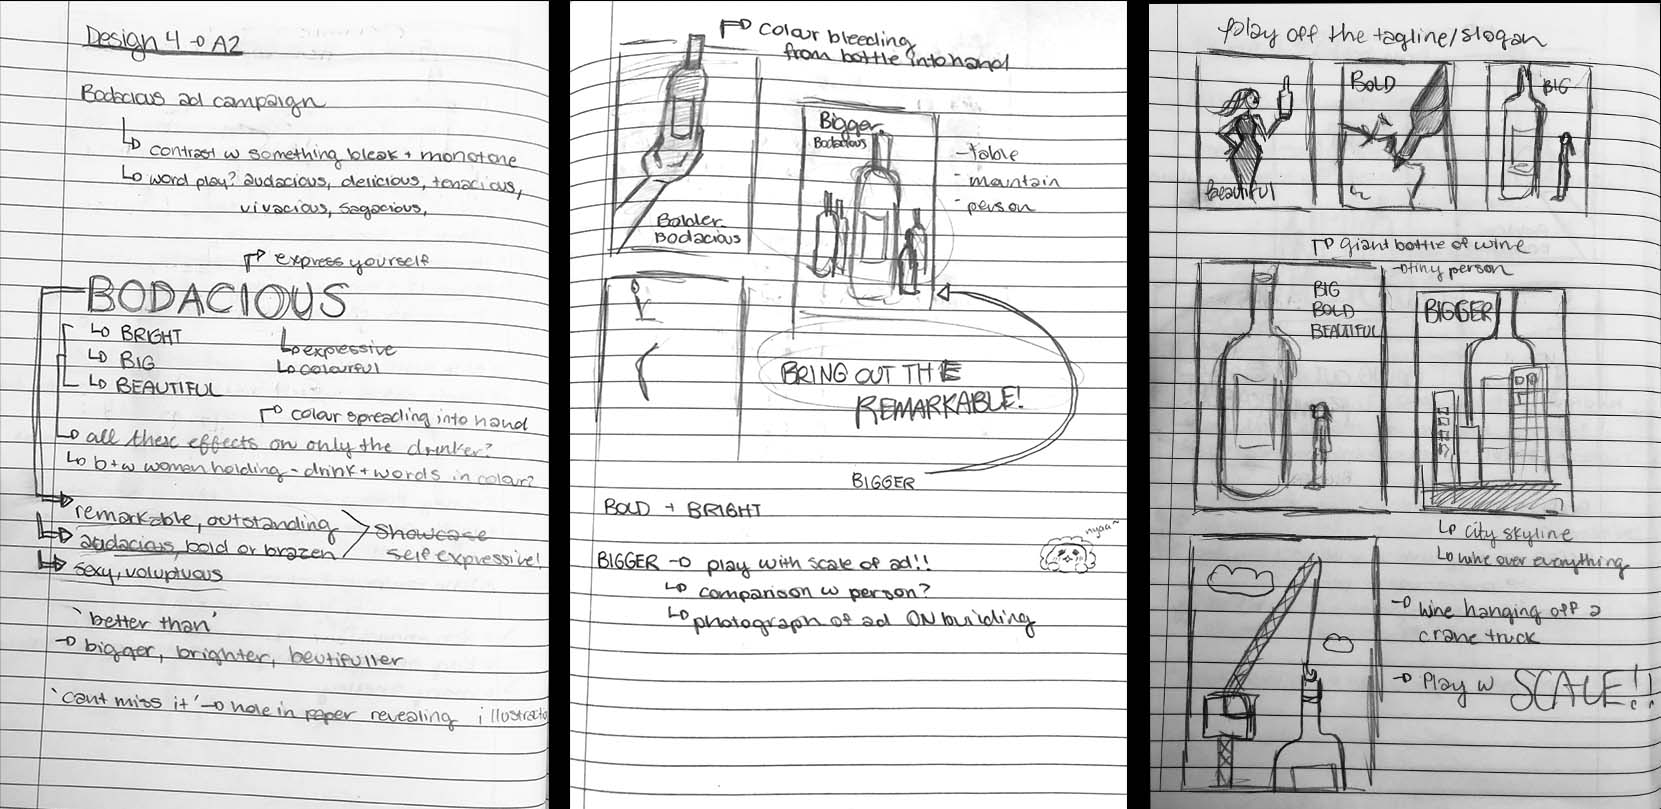 Design 4 → A2
Bodacious ad campaign
↳ contrast w something bleak + monotone
↳ word play? audacious, delicious, tenacious,
vivacious, sagacious,
↱ express yourself
BODACIOUS
↳ BRIGHT
↳ BIG
↳ BEAUTIFUL
↳ expressive
↳ colourful
↱ colour spreading into hand
↳ all these effects on only the drinker?
↳ b+w women holding - drink + words in colour?
→ remarkable, outstanding
↳ audacious, bold or brazen
↳ sexy, voluptuous
showcase
self expressive!
'better than'
→ bigger, brighter, beutifuller
'cant miss it' → hole in paper revealing illustratio
↱ colour bleeding
from bottle into hand
Bolder.
Bodacious
Bigger.
Bodacious
- table
- mountain
- person
BRING OUT THE
REMARKABLE!
BIGGER
BOLD + BRIGHT
nyaa~
BIGGER → play with scale of ad!!
↳ comparison w person?
↳ photograph of ad ON building
play off the tagline/slogan
beautiful
BOLD
BIG
↱ giant bottle of wine
→ tiny person
BIG
BOLD
BEAUTIFUL
BIGGER
↳ city skyline
↳ wine over everything
→ wine hanging off a
crane truck
→ Play w SCALE!!